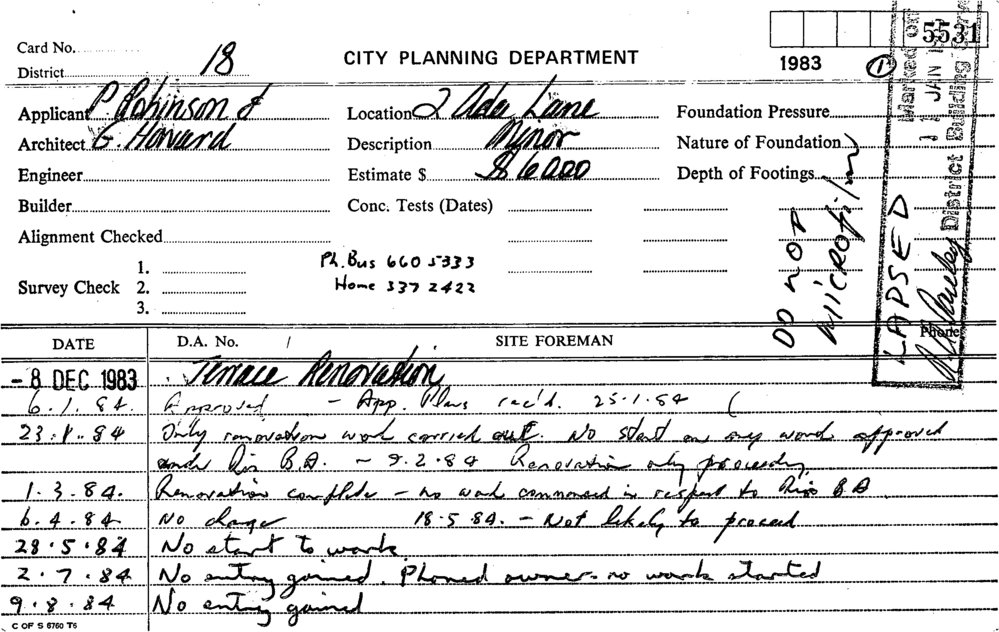 5531
Card No.
District 18
CITY PLANNING DEPARTMENT
1983 1
Applicant P. Robinson &
Location 2 Ada Lane
Foundation Pressure
Architect G. Howard
Description Minor
Nature of Foundation
Engineer
Estimate $ $6000
Depth of Footings
Builder
Conc. Tests (Dates)
Alignment Checked
Ph. Bus 660 5333
Home 337 2422
Survey Check
1.
2.
3.
DO NOT
MICROfilm
LAPSED
Marked off
JAN
District Building
Phone
DATE D.A. No. / SITE FOREMAN
- 8 DEC 1983 Terrace Renovation
6.1.84. Approved - App. Plans rec'd. 25-1-84
23.1.84 Only renovation work carried out. No start on any work approved
under this B.A. - 9.2.84 Renovation only proceeding.
1.3.84. Renovation complete - no work commenced in respect to this B.A
6.4.84 No change 18-5-84. - Not likely to proceed
28.5.84 No start to work
2.7.84 No entry gained. Phoned owner - no work started
9.8.84 No entry gained
C OF S 6760 T6